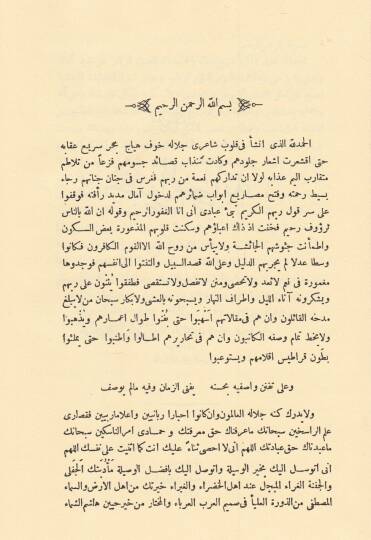 بسم الله الرحمن الرحيم
الحمدلله الذى انشأ فى قلوب شاعرى جلاله خوف هياج بحر سريع عقابه
حتى اقشعرت اشعار جلودهم وكادت تنداب قصائد جسومهم فزعا من تلاطم
متقارب اليم عذابه لولا ان تداركهم نعمة من ربهم فغرس فى جنان جنانهم رجاء
بسيط رحمته وفتح مصاريع ابواب ضمائرهم لدخول آمال مديد رأفته فوقفوا
على سر قول ربهم الكريم نبئ عبادى أنى انا الغفور الرحيم وقوله ان الله بالناس
لرؤوف رحيم فخفت اذ ذاك اعباؤهم وسكنت قلوبهم المذعورة بعض السكون
واطمأنت جئوشهم الجائشة ولاييأس من روح الله الاالقوم الكافرون فكانوا
وسطا عدلا لم يجربهم الدليل وعلى الله قصد السبيل والتفتوا الى انفسهم فوجدوها
مغمورة فى نعم لاتعد ولاتحصى ومنن لاتفصل ولاتستقصى فطفقوا يثنون على ربهم
ويشكرونه آناء الليل واطراف النهار ويسبحونه بالعشى والابكار سبحان من لايبلغ
مدحه القائلون وان هم فى مقالاتهم اسهبوا حتى يفنوا طوال اعمارهم ويذهبوا
ولايحيط تمام وصفه الكاتبون وان هم فى تحاريرهم اطالوا واطنبوا حتى يملئوا
بطون قراطيس اقلامهم ويستوعبوا
وعلى تفنن واصفيه بحسنه يفنى الزمان وفيه مالم يوصف
ولايدرك كنه جلاله العالمون وان كانوا احبارا ربانيين واعلاما ربيين فقصارى
علم الراسخين سبحانك ماعرفناك حق معرفتك وحمادى امر الناسكين سبحانك
ماعبدناك حق عبادتك اللهم أنى لااحصى ثناء عليك انت كما اثنيت على نفسك اللهم
أنى اتوسل اليك بخير الوسيلة واتوصل اليك بافضل الوصيلة مأدبتك الجفلى
والجفنة الغراء المبجل عند اهل الخضراء والغبراء خيرتك من اهل الارض والسماء
المصطفى من الذورة العليا فى صميم العرب العرباء والمختار من خير حيين هاشم الشماء